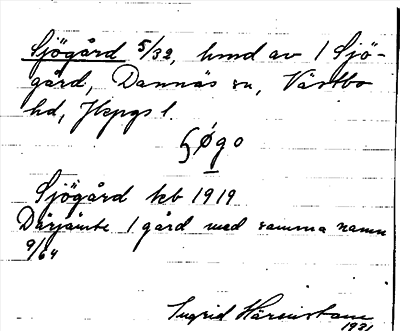 Sjögård 5/32, hmd av 1 Sjö-
gård, Dannäs sn, Västbo
hd, Jkpgs l.
Sjögård kb 1919
Därjämte 1 gård med samma namn
9/64
Ingrid
1931